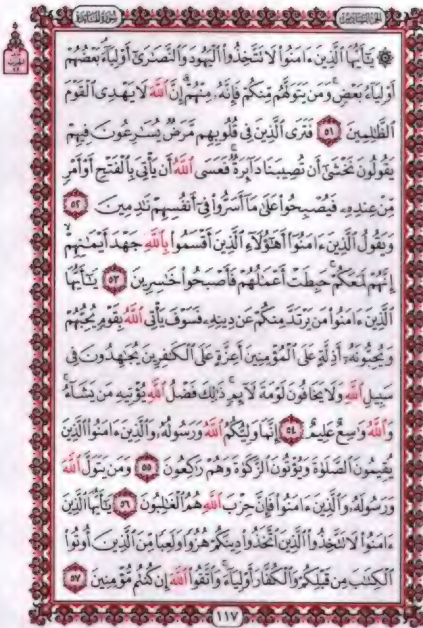 الجزء السادس
سورة المائدة
۞ يَٰٓأَيُّهَا ٱلَّذِينَ ءَامَنُوا۟ لَا تَتَّخِذُوا۟ ٱلْيَهُودَ وَٱلنَّصَٰرَىٰٓ أَوْلِيَآءَ بَعْضُهُمْ
أَوْلِيَآءُ بَعْضٍ وَمَن يَتَوَلَّهُم مِّنكُمْ فَإِنَّهُۥ مِنْهُمْ إِنَّ ٱللَّهَ لَا يَهْدِى ٱلْقَوْمَ
ٱلظَّٰلِمِينَ ٥١ فَتَرَى ٱلَّذِينَ فِى قُلُوبِهِم مَّرَضٌ يُسَٰرِعُونَ فِيهِمْ
يَقُولُونَ نَخْشَىٰٓ أَن تُصِيبَنَا دَآئِرَةٌ فَعَسَى ٱللَّهُ أَن يَأْتِىَ بِٱلْفَتْحِ أَوْ أَمْرٍ
مِّنْ عِندِهِۦ فَيُصْبِحُوا۟ عَلَىٰ مَآ أَسَرُّوا۟ فِىٓ أَنفُسِهِمْ نَٰدِمِينَ ٥٢
وَيَقُولُ ٱلَّذِينَ ءَامَنُوٓا۟ أَهَٰٓؤُلَآءِ ٱلَّذِينَ أَقْسَمُوا۟ بِٱللَّهِ جَهْدَ أَيْمَٰنِهِمْ
إِنَّهُمْ لَمَعَكُمْ حَبِطَتْ أَعْمَٰلُهُمْ فَأَصْبَحُوا۟ خَٰسِرِينَ ٥٣ يَٰٓأَيُّهَا
ٱلَّذِينَ ءَامَنُوا۟ مَن يَرْتَدَّ مِنكُمْ عَن دِينِهِۦ فَسَوْفَ يَأْتِى ٱللَّهُ بِقَوْمٍ يُحِبُّهُمْ
وَيُحِبُّونَهُۥٓ أَذِلَّةٍ عَلَى ٱلْمُؤْمِنِينَ أَعِزَّةٍ عَلَى ٱلْكَٰفِرِينَ يُجَٰهِدُونَ فِى
سَبِيلِ ٱللَّهِ وَلَا يَخَافُونَ لَوْمَةَ لَآئِمٍ ذَٰلِكَ فَضْلُ ٱللَّهِ يُؤْتِيهِ مَن يَشَآءُ
وَٱللَّهُ وَٰسِعٌ عَلِيمٌ ٥٤ إِنَّمَا وَلِيُّكُمُ ٱللَّهُ وَرَسُولُهُۥ وَٱلَّذِينَ ءَامَنُوا۟ ٱلَّذِينَ
يُقِيمُونَ ٱلصَّلَوٰةَ وَيُؤْتُونَ ٱلزَّكَوٰةَ وَهُمْ رَٰكِعُونَ ٥٥ وَمَن يَتَوَلَّ ٱللَّهَ
وَرَسُولَهُۥ وَٱلَّذِينَ ءَامَنُوا۟ فَإِنَّ حِزْبَ ٱللَّهِ هُمُ ٱلْغَٰلِبُونَ ٥٦ يَٰٓأَيُّهَا ٱلَّذِينَ
ءَامَنُوا۟ لَا تَتَّخِذُوا۟ ٱلَّذِينَ ٱتَّخَذُوا۟ دِينَكُمْ هُزُوًا وَلَعِبًا مِّنَ ٱلَّذِينَ أُوتُوا۟
ٱلْكِتَٰبَ مِن قَبْلِكُمْ وَٱلْكُفَّارَ أَوْلِيَآءَ وَٱتَّقُوا۟ ٱللَّهَ إِن كُنتُم مُّؤْمِنِينَ ٥٧
١١٧